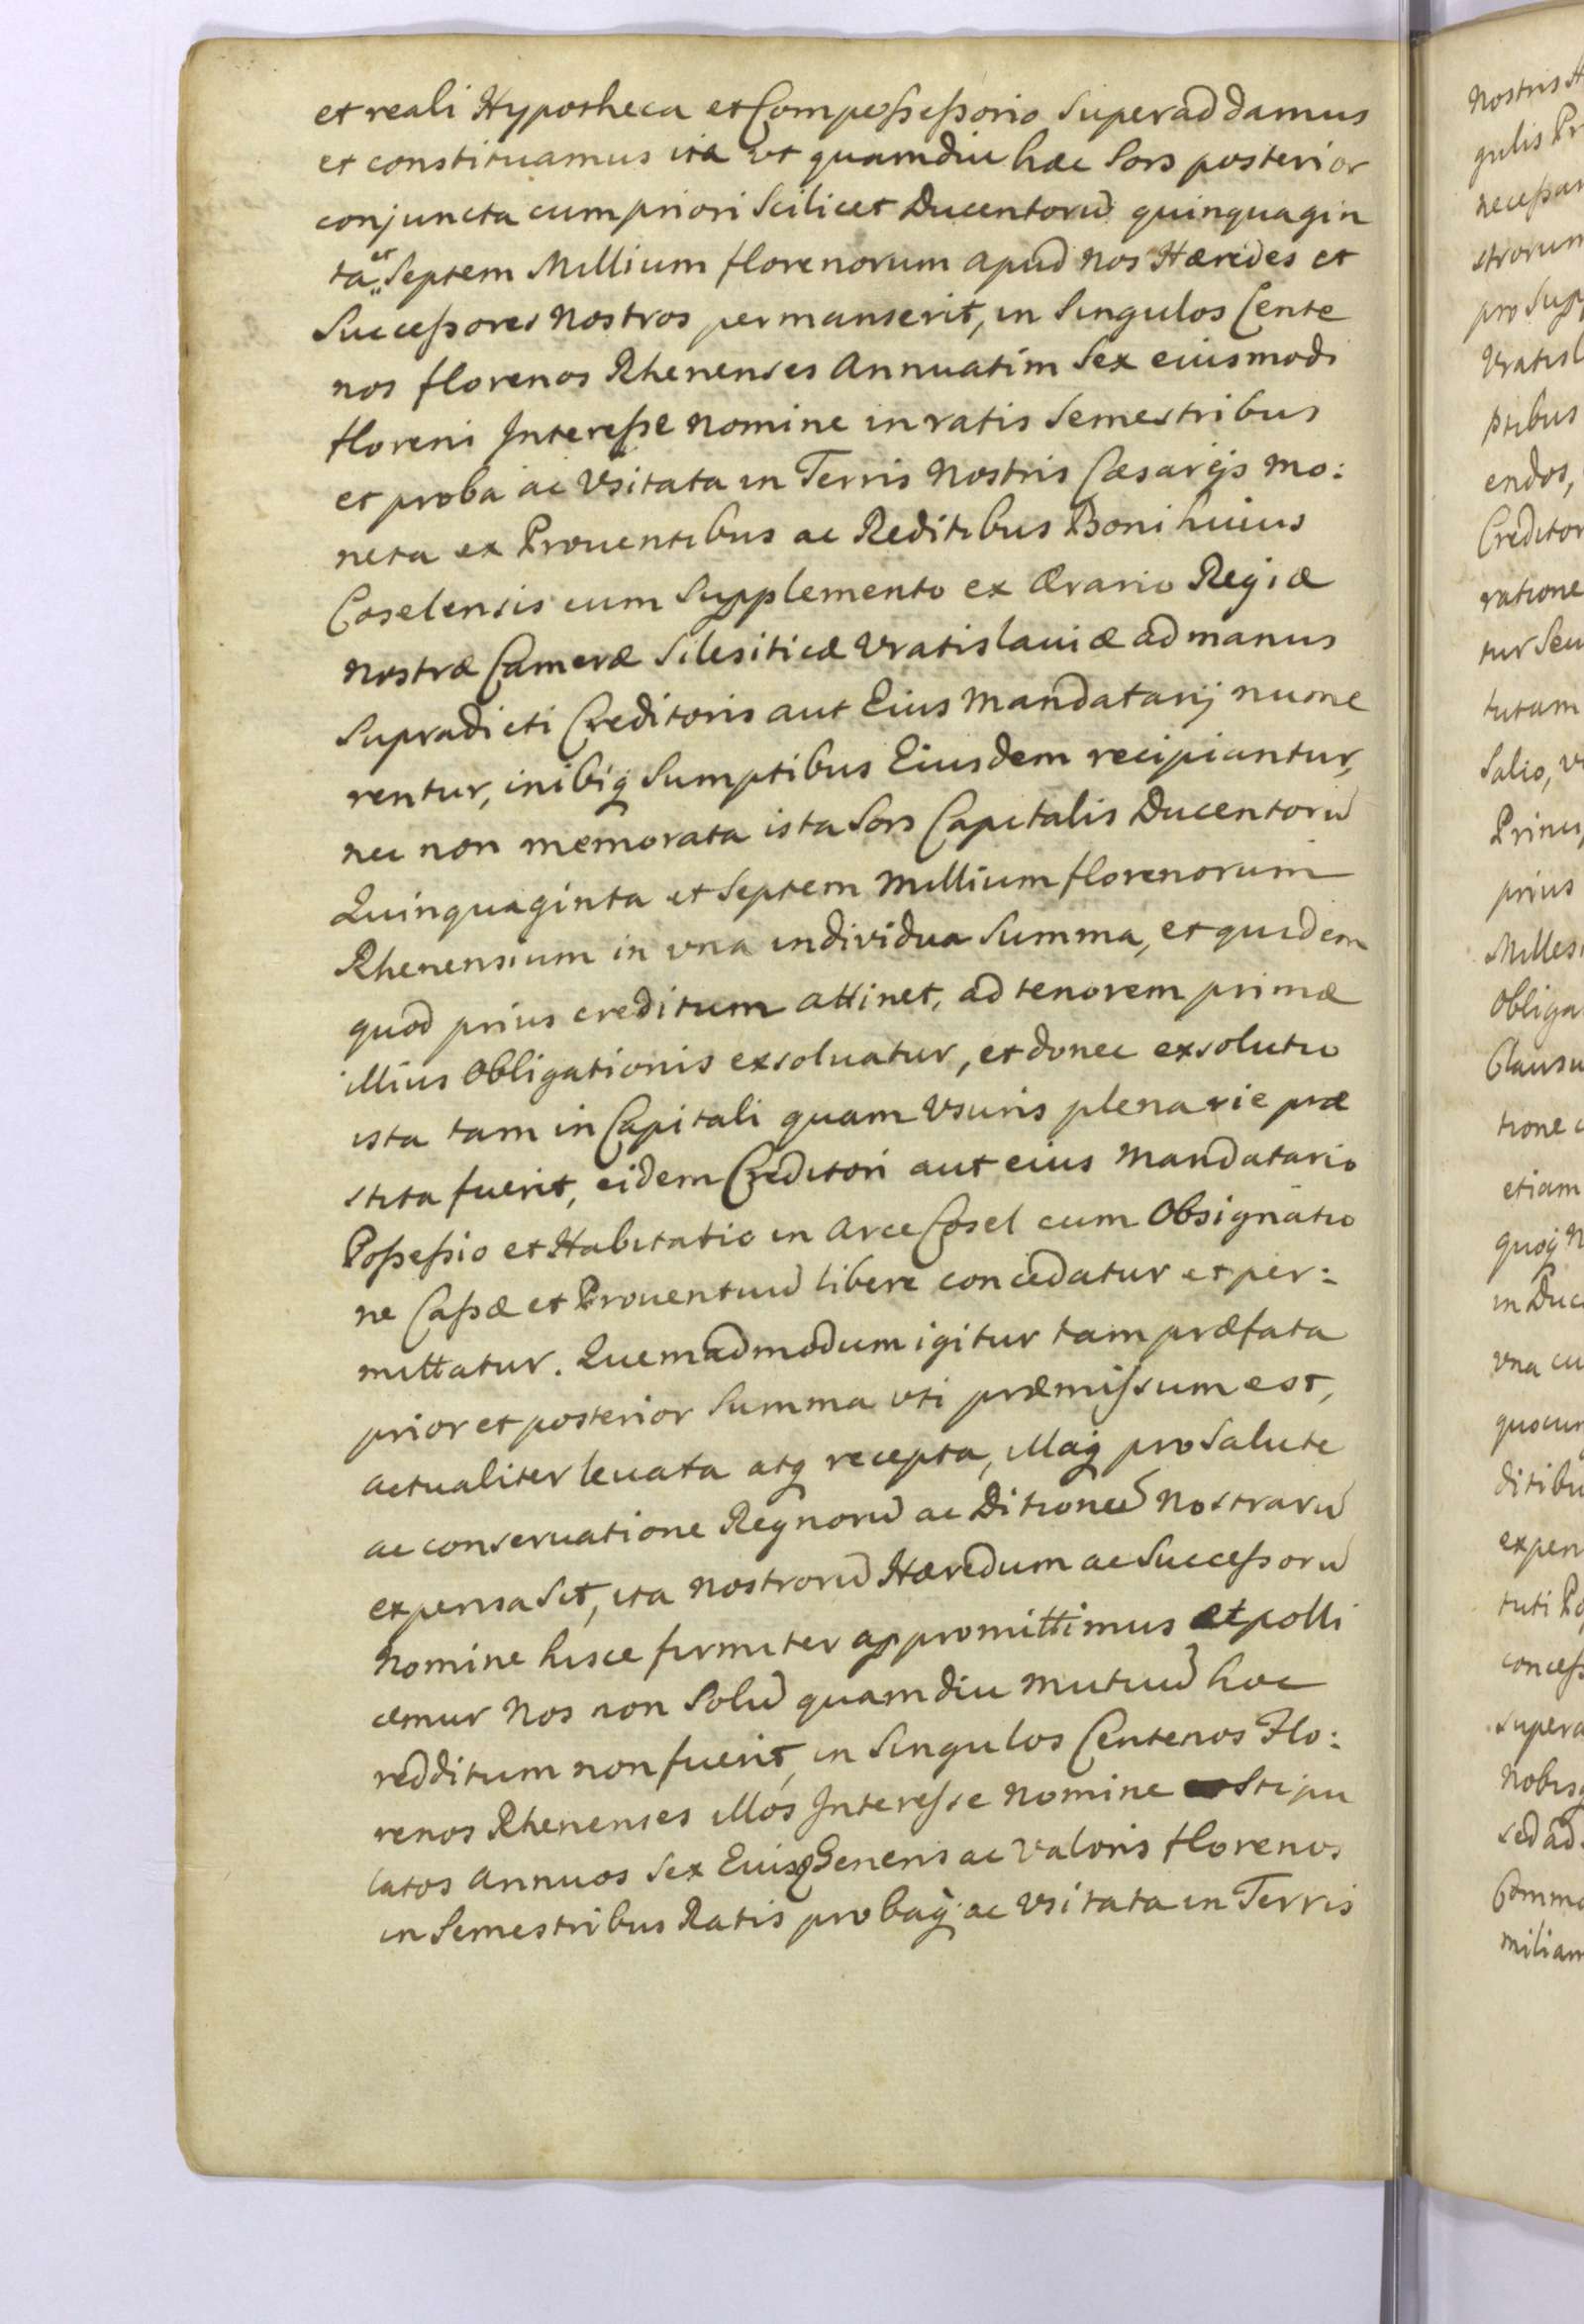 et reali Hypotheca et Compossessorio Superaddamus
et constituamus ita vt quamdiu hæc Sors posterior
conjuncta cum priori Scilicet Ducentorũ quinquagin
ta et Septem Millium florenorum apud nos Hæredes et
Successores Nostros permanserit, in Singulos Cente
nos florenos Rhenenses Annuatim Sex eiusmodi
floreni Interesse nomine in ratis Semestribus
et proba ac Vsitata in Terris Nostris Cæsareis mo:
neta ex Prouentibus ac Reditibus Boni huius
Coselensis cum Supplemento ex Ærario Regiæ
Nostræ Cameræ Silesiticæ Vratislauiæ ad manus
Supradicti Creditoris aut Eius Mandatarij nume
rentur, inibiq Sumptibus Eiusdem recipiantur,
nec non memorata ista Sors Capitalis Ducentorũ
Quinquaginta et Septem Millium florenorum
Rhenensium in vna individua Summa, et quidem
quod prius creditum attinet, ad tenorem primæ
illius Obligationis exsoluatur, et donec exsolutio
ista tam in Capitali quam Vsuris plenarie præ
stita fuerit, eidem Creditori aut eius Mandatario
Possessio et Habitatio in Arce Cosel cum Obsignatio
ne Cassæ et Prouentuũ libere concedatur et per:
mittatur. Quemadmodum igitur tam præfata
prior et posterior Summa vti præmissum est,
actualiter leuata atq recepta, illaq pro Salute
ac conseruatione Regnorũ ac Ditionũ Nostrarũ
expensa Sit, ita Nostrorũ Hæredum ac Successorũ
Nomine hisce firmiter appromittimus et polli
cemur Nos non Solũ quamdiu mutuũ hoc
redditum non fuerit, in Singulos Centenos Flo:
renos Rhenenses illos Interesse Nomine Stipu
latos Annuos Sex Eiusq Generis ac Valoris florenos
in Semestribus Ratis probaq ac Vsitata in Terris